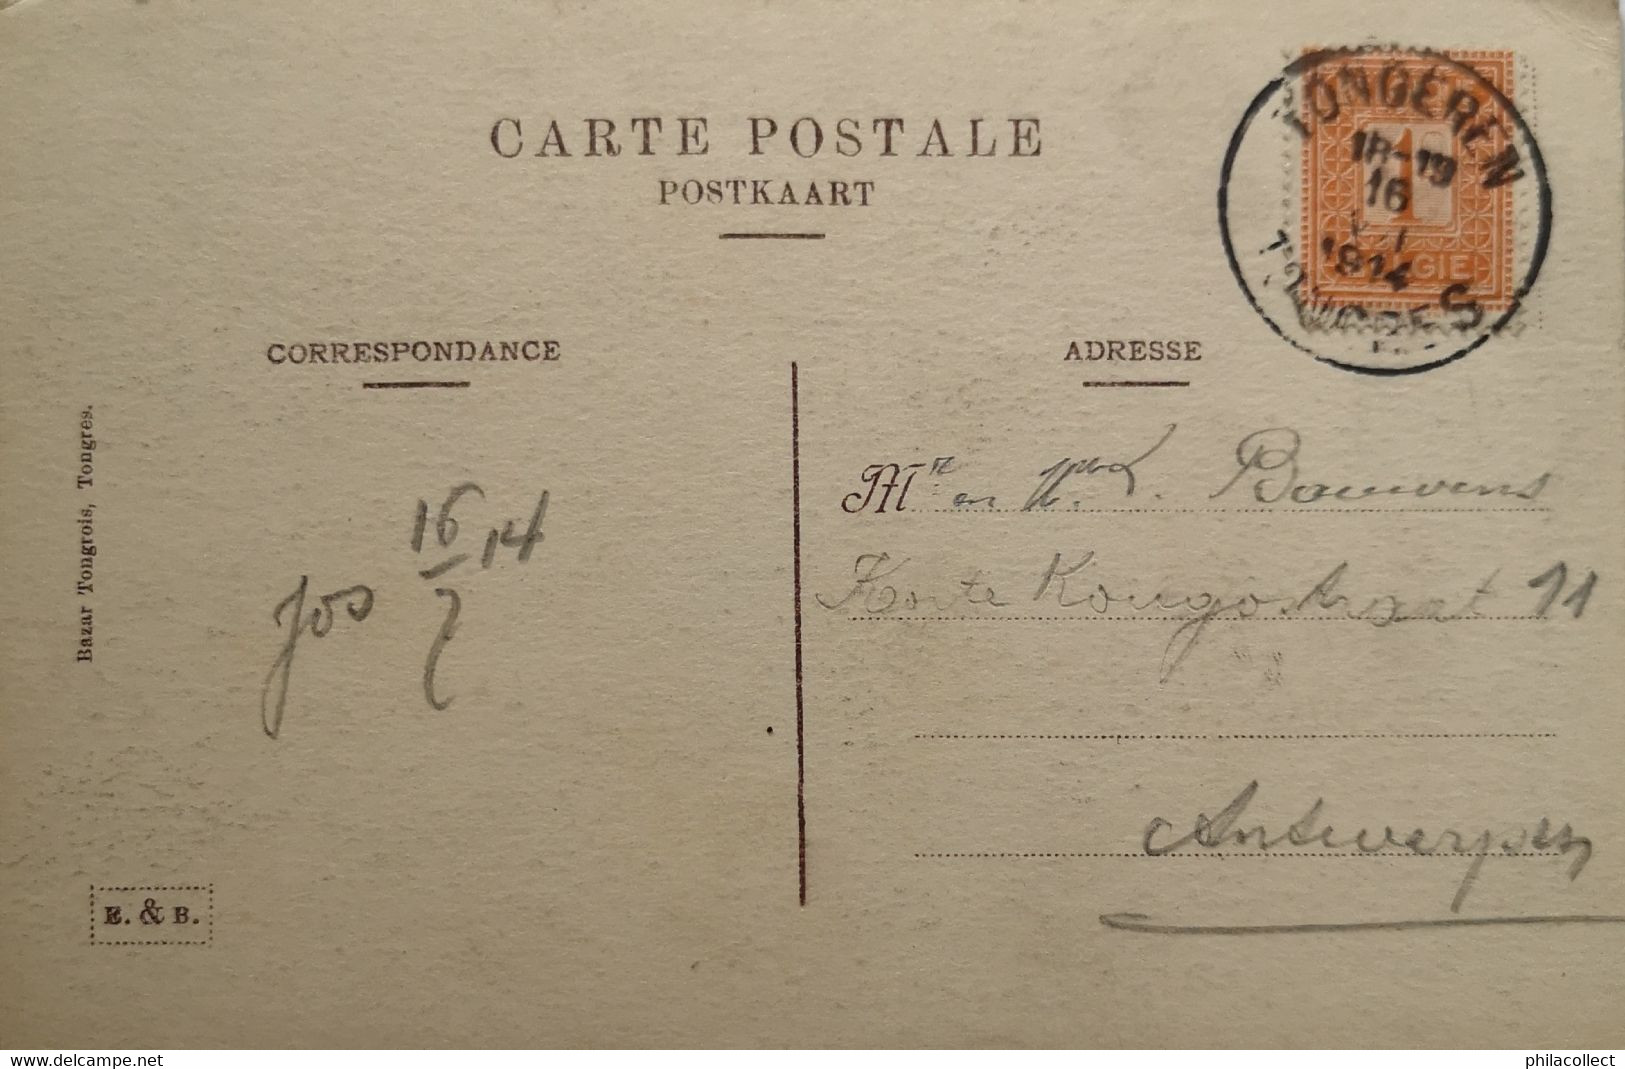 CARTE POSTALE
POSTKAART
TONGEREN
18-19
16
1914
TONGRES
1
CORRESPONDANCE
ADRESSE
Bazar Tongrois, Tongres.
Jos 16/7 14
Mr en Bauwens
Korte Kongostraat 11
Antwerpen
E. & B.
www.delcampe.net
philacollect